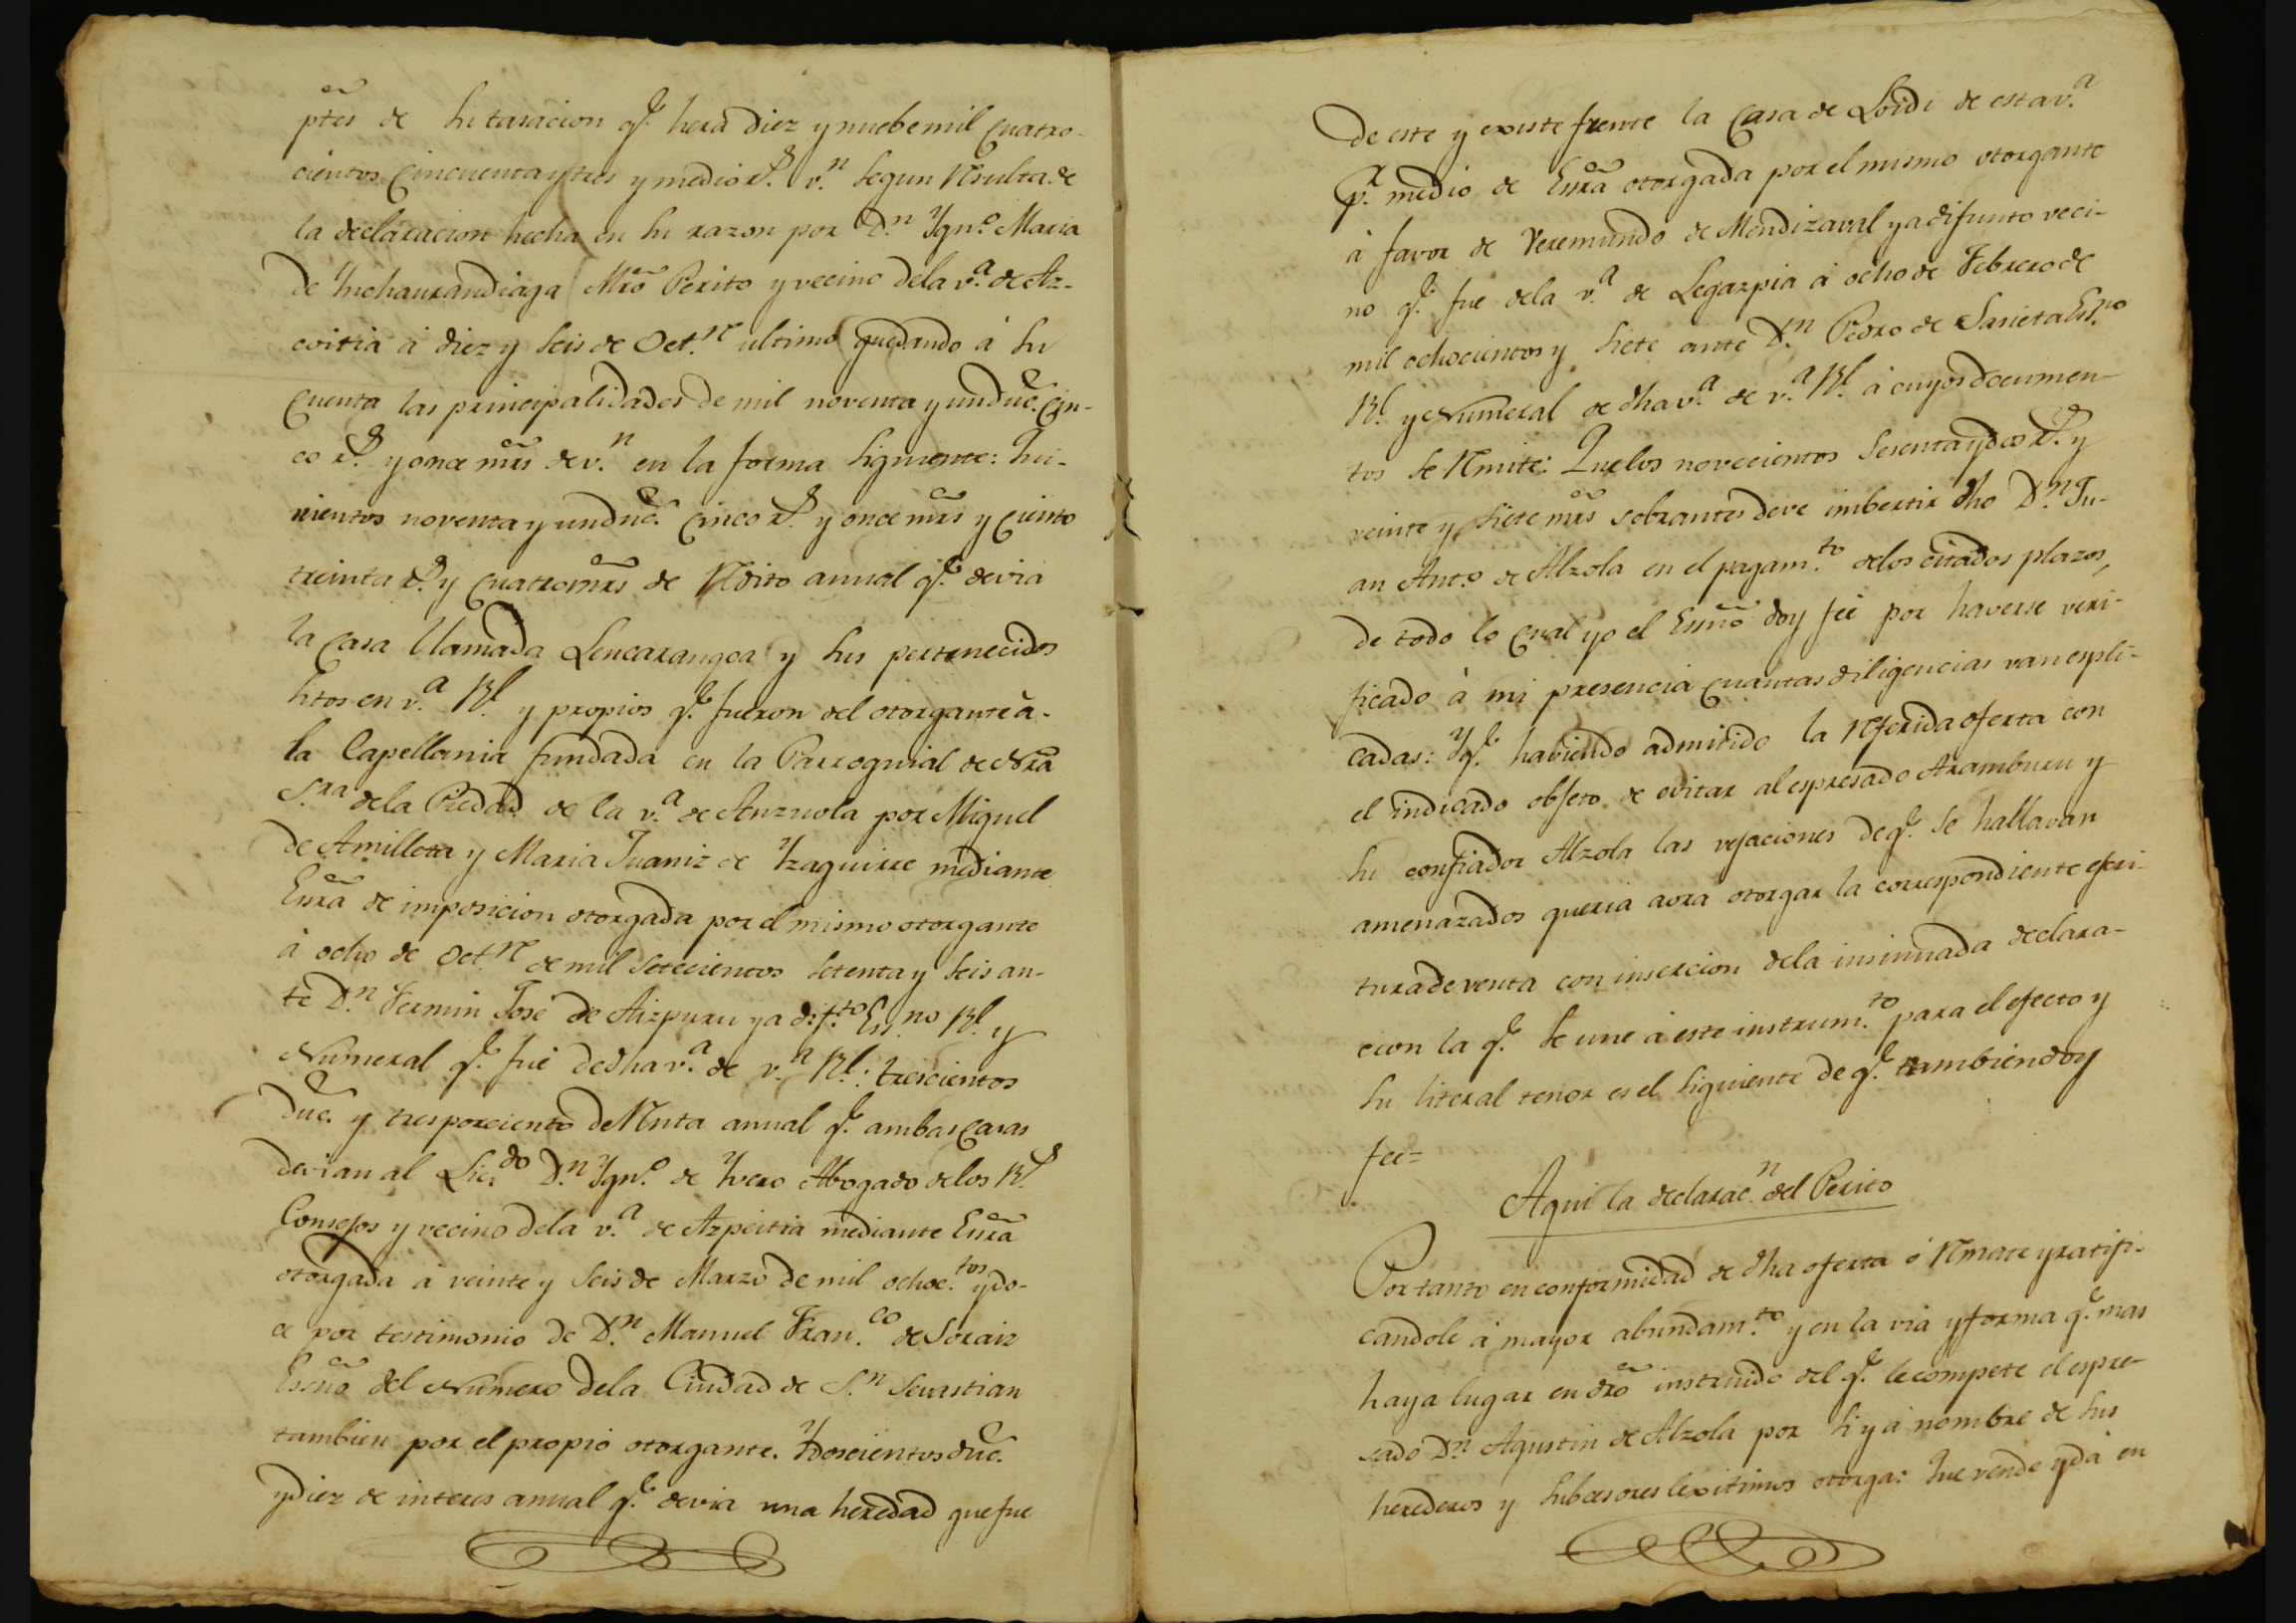 ptes de su tasacion q.e hera diez y nuebe mil cuatro-
cientos cincuenta y tres y medio r.s v.n segun resulta de
la declaracion hecha en su razon por D.n Ygn.o Maria
de Ynchaurandiaga Mro Perito y vecino dela v.a de Az-
coitia á diez y seis de Oct.re ultimo quedando á su
cuenta las principalidades de mil noventa y un duc.s cin-
co r.s y once mrs de v.n en la forma siguiente: Qui-
nientos noventa y un duc.s cinco r.s y once mrs y ciento
treinta r.s y cuatro mrs de redito annual q.e devia
la casa llamada Lencarangoa y sus pertenecidos
sitos en v.a R.l y propios q.e fueron del otorgante à
la Capellania fundada en la Parroquial de Nra
S.ra dela Piedad de la v.a de Anzuola por Miguel
de Amilleta y Maria Juaniz de Yzaguirre mediante
Essra de imposicion otorgada por el mismo otorgante
à ocho de Oct.re de mil setecientos setenta y seis an-
te D.n Fermin José de Aizpuru ya dif.to Ess.no R.l y
Numeral q.e fué de dha v.a de v.a R.l: trescientos
duc.s y tres por ciento de renta annual q.e ambas casas
devian al Lic.do D.n Ygn.o de Yvero Abogado delos R.s
Consejos y vecino dela v.a de Azpeitia mediante Essra
otorgada á veinte y seis de Marzo de mil ochoc.tos y do-
ce por testimonio de D.n Manuel Fran.co de Soraiz
Essno del Numero dela Ciudad de S.n Sevastian
tambien por el propio otorgante. Y doscientos duc.s
y diez de interes annual q.e devia una heredad que fue
De este y existe frente la Casa de Loidi de esta v.a
p.r medio de Essra otorgada por el mismo otorgante
á favor de Veremundo de Mendizaval ya difunto veci-
no q.e fue dela v.a de Legazpia á ocho de Febrero de
mil ochocientos y siete ante D.n Pedro de Sarieta Es.no
R.l y Numeral de dha v.a de v.a R.l á cuyos documen-
tos se remite: Que los novecientos sesenta y dos r.s y
veinte y siete mrs sobrantes deve imbertir dho D.n Ju-
an Ant.o de Alzola en el pagam.to delos citados plazos,
de todo lo cual yo el Essno doy feé por haverse veri-
ficado à mi presencia cuantas diligencias van espli-
cadas: Y q.e haviendo admitido la referida oferta con
el indicado objeto de evitar al espresado Aramburu y
su confiador Alzola las vejaciones de q.e se hallavan
amenazados queria aora otorgar la correspondiente escri-
tura de venta con insercion dela insinuada declara-
cion la q.e se une á este instrum.to para el efecto y
su literal tenor es el siguiente de q.e tambien doy
feé=
Aqui la declarac.n del Perito
Por tanto en conformidad de dha oferta ó remate y ratifi-
candole á mayor abundam.to y en la via y forma q.e mas
haya lugar en dro instruido del q.e le compete el espre-
sado D.n Agustin de Alzola por si y á nombre de sus
herederos y subcesores lexitimos otorga: Que vende y dà en